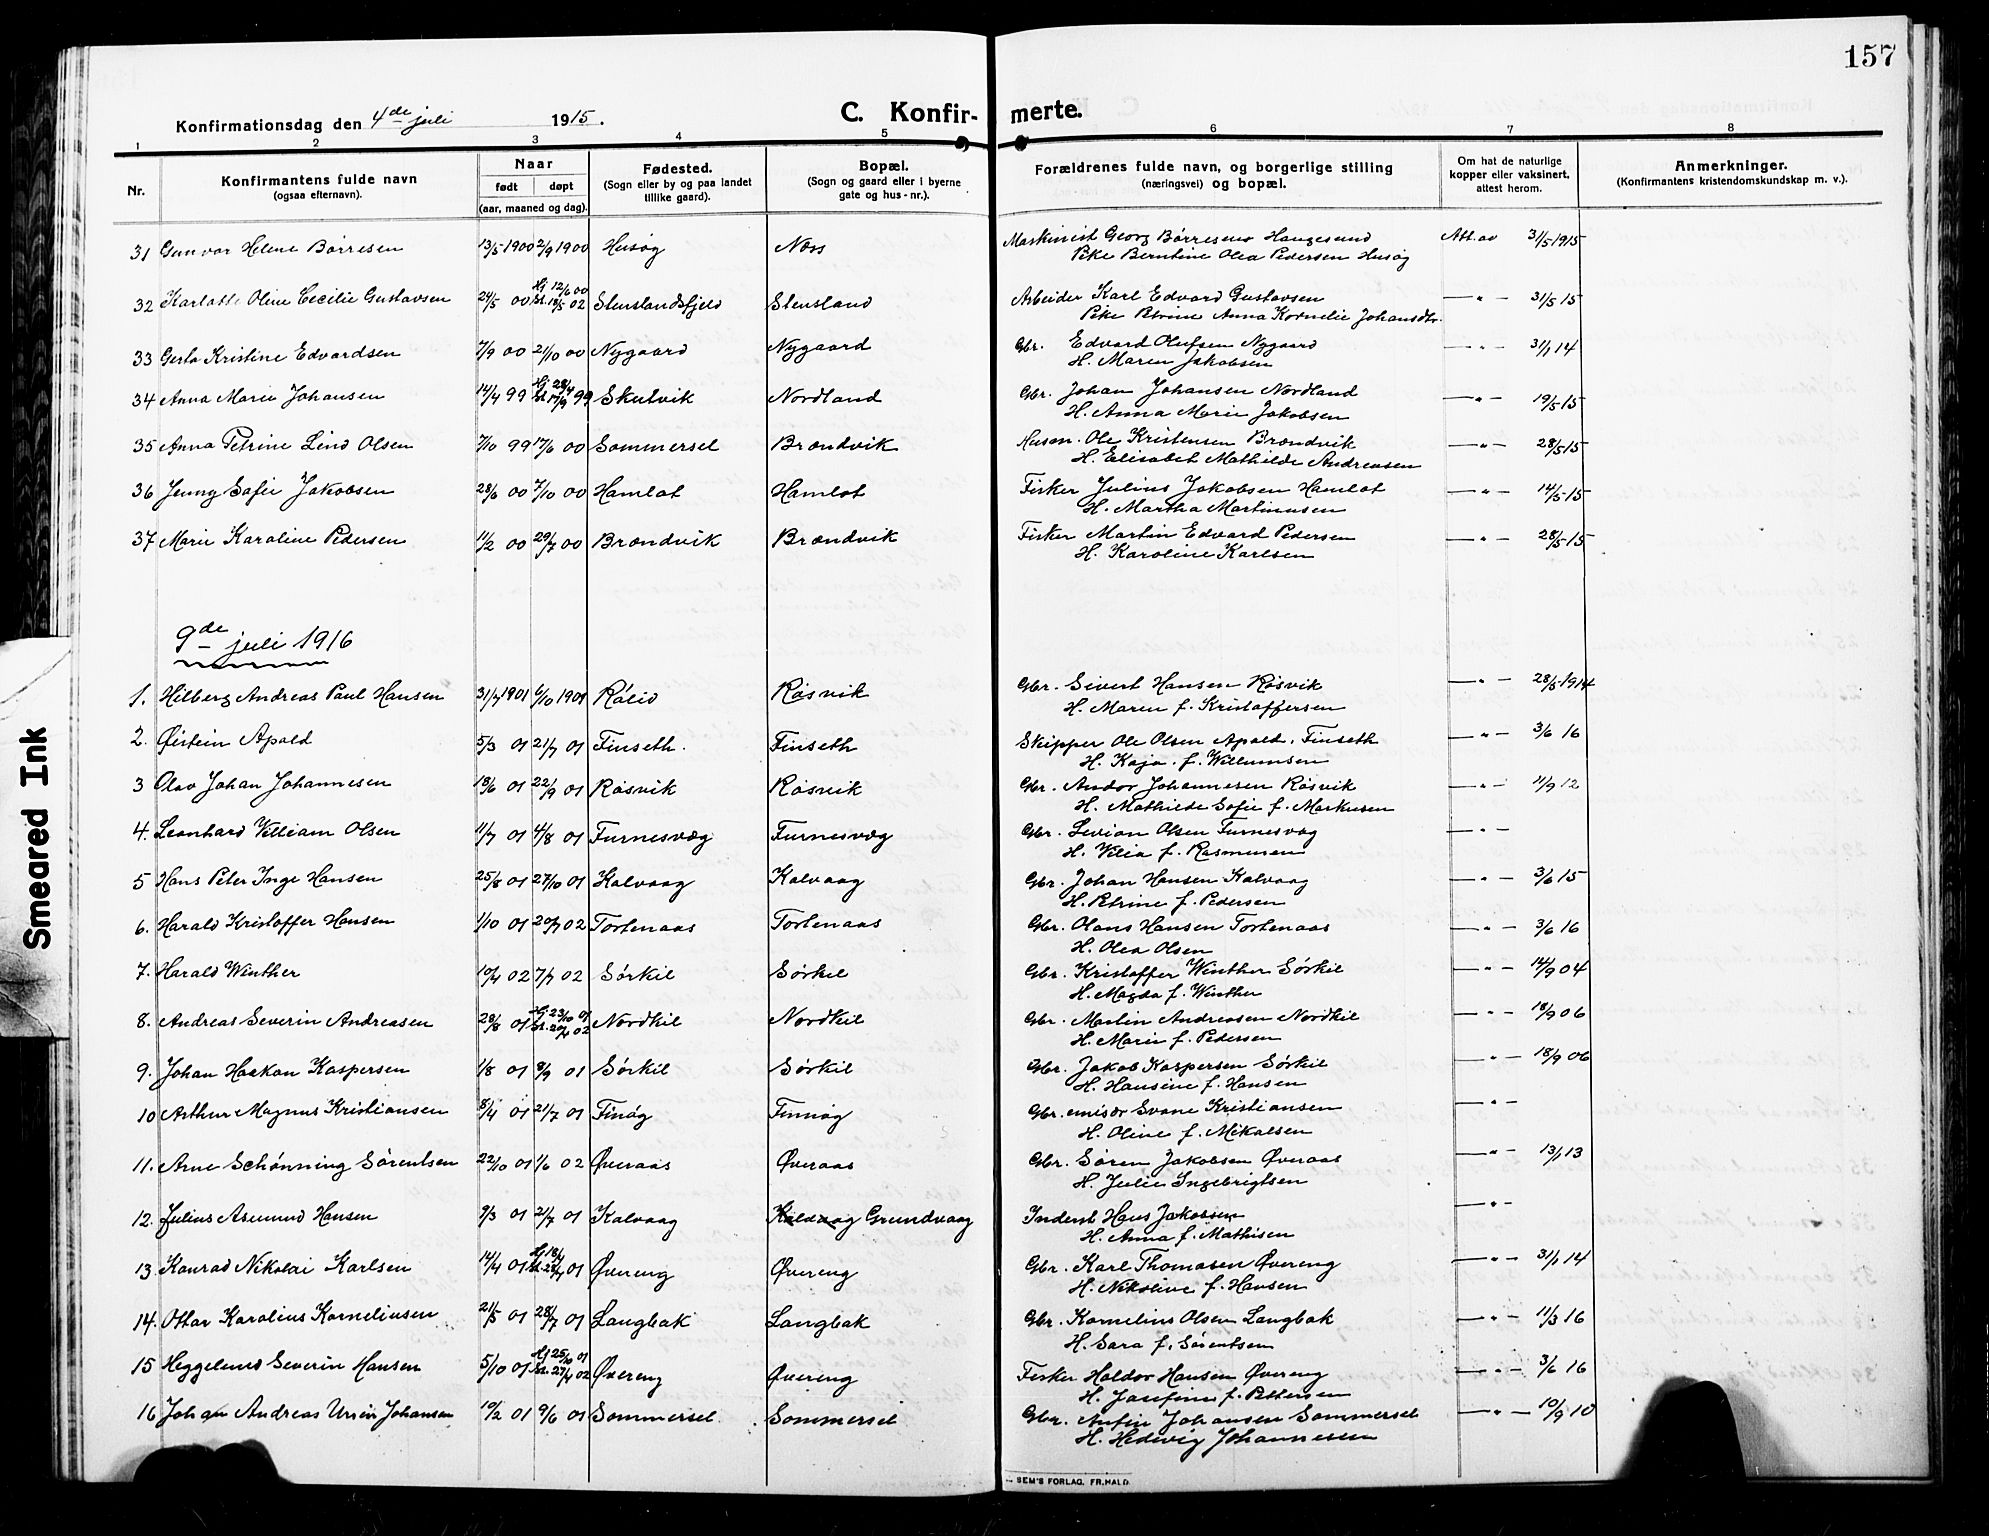 157
Konfirmationsdag den 4de juli 1915.
C. Konfirmerte.
1 2 3 4 5 6 7 8
Nr.
Konfirmantens fulde navn
(ogsaa efternavn).
Naar
født døpt
(aar, maaned og dag).
Fødested.
(Sogn eller by og paa landet
tillike gaard).
Bopæl.
(Sogn og gaard eller i byerne
gate og hus-nr.).
Forældrenes fulde navn, og borgerlige stilling
(næringsvei) og bopæl.
Om hat de naturlige
kopper eller vaksinert,
attest herom.
Anmerkninger.
(Konfirmantens kristendomskundskap m. v.).
31 Gunvor Helene Børresen 13/5 1900 2/9 1900 Husøy Næs Maskinist Georg Børresen Haugesund Att. av 31/5 1915
Pike Berntine Olea Pedersen Husøy
32 Karlotte Oline Cecilie Gustavsen 24/5 00 Hj 12/6 00 Stenslandsfjeld Stensland Arbeider Karl Edvard Gustavsen —"— 31/5 15
Pike Petrine Anna Kornelie Johansdtr.
33 Gerla Kristine Edvardsen 7/9 00 21/10 00 Nygaard Nygaard Gbr. Edvard Olufsen Nygaard —"— 31/1 14
H. Maren Jakobsen
34 Anna Marie Johansen 14/4 99 Skutvik Nordland Gbr. Johan Johansen Nordland —"— 19/5 15
H. Anna Marie Jakobsen
35 Anna Petrine Lind Olsen 7/10 99 17/6 00 Sommersel Brændvik Husm. Ole Kristensen Brændvik —"— 28/5 15
H. Elisabet Mathilde Andreasen
36 Jenny Sofie Jakobsen 28/6 00 7/10 00 Hamlot Hamlot Fisker Julius Jakobsen Hamlot —"— 14/5 15
H. Martha Martinusen
37 Marie Karoline Pedersen 11/2 00 29/7 00 Brændvik Brændvik Fisker Martin Edvard Pedersen —"— 28/5 15
H. Karoline Karlsen
9de juli 1916
1. Hilberg Andreas Paul Hansen 31/7 1901 6/10 1901 Rølid Røsvik Gbr. Sivert Hansen Røsvik —"— 28/5 1914
H. Maren f. Kristoffersen
2. Øistein Apold 5/3 01 21/7 01 Finseth. Finseth Skipper Ole Olsen Apold, Finseth —"— 3/6 16
H. Kaja f. Willumsen
3 Olav Johan Johannesen 18/6 01 22/9 01 Røsvik Røsvik Gbr. Andor Johannesen Røsvik —"— 11/9 12
H. Mathilde Sofie f. Markusen
4. Leonhard Villiam Olsen 11/7 01 4/8 01 Furnesvæg Furnesvæg Gbr. Levian Olsen Furnesvag —"—
H. Vilia f. Rasmusen
5 Hans Peter Inge Hansen 25/8 01 27/10 01 Kalvaag Kalvaag Gbr. Johan Hansen Kalvaag —"— 3/6 15
H. Petrine f. Pedersen
6. Harald Kristoffer Hansen 1/10 01 20/7 02 Tortenaas Tortenaas Gbr. Olans Hansen Tortenaas —"— 3/6 16
H. Olea Olsen
7. Harald Winther 10/4 02 7/7 02 Sørkil Sørkil Gbr. Kristoffer Winther Sørkil —"— 14/9 04
H. Magda f. Winther
8. Andreas Severin Andreasen 28/8 01 Hj. 23/10 01 Nordkil Nordkil Gbr. Martin Andreasen Nordkil —"— 18/9 06
H. Marie f. Pedersen
9. Johan Haakon Kaspersen 1/8 01 8/9 01 Sørkil Sørkil Gbr. Jakob Kaspersen Sørkil —"— 18/9 06
H. Hansine f. Hansen
10 Arthur Magnus Kristiansen 8/4 01 21/7 01 Finøy Finnøy Gbr. emisær Svane Kristiansen —"—
H. Oline f. Mikalsen
11. Arne Schønning Sørentsen 22/10 01 1/6 02 Øveraas Øveraas Gbr. Søren Jakobsen Øveraas —"— 13/1 13
H. Julie Ingebrigtsen
12. Julius Asmund Hansen 9/3 01 21/7 01 Kalvaag Kalvaag Grundvaag Inderst Hans Jakobsen —"—
H. Anna f. Mathisen
13. Konrad Nikolai Karlsen 14/4 01 Øvereng Øvereng Gbr. Karl Thomasen Øvereng —"— 31/1 14
H. Nikoline f. Hansen
14. Ottar Karolius Korneliusen 21/5 01 28/7 01 Langbak Langbak Gbr. Kornelius Olsen Langbak —"— 11/3 16
H. Sara f. Sørentsen
15 Heggelund Severin Hansen 5/10 01 Hj 25/10 01 Øvereng Øvereng Fisker Haldor Hansen Øvereng —"— 3/6 16
H. Josefine f. Pettersen
16 Johan Andreas Unin Johansen 10/2 01 9/6 01 Sommersel. Sommersel Gbr. Anfin Johansen Sommersel —"— 10/9 10
H. Hedevig Johannesen
SEM'S FORLAG, FR.HALD.
Smeared Ink